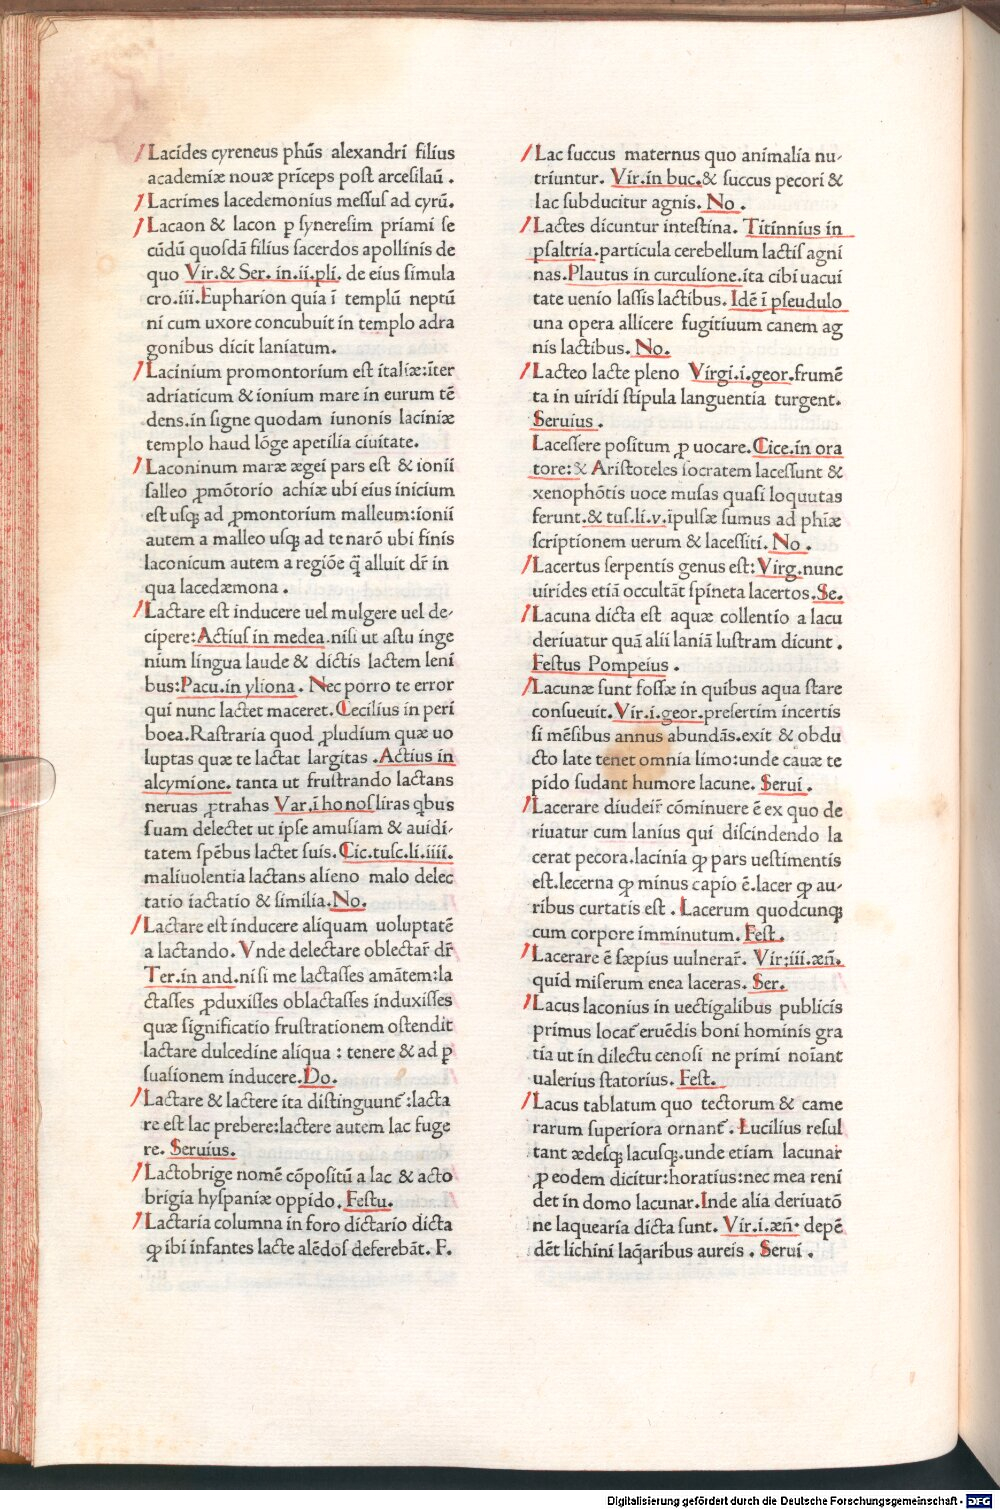 Lacides cyreneus phūs alexandri filius
academiæ nouæ prīceps post arcesilaū .
Lacrimes lacedemonius messus ad cyrū.
Lacaon & lacon ꝑ syneresim priami se
cūdū quosdā filius sacerdos apollinis de
quo Vir.& Ser. in.ii.pli. de eius simula
cro.iii.Eupharion quia ī templū neptū
ni cum uxore concubuit in templo adra
gonibus dicit laniatum.
Lacinium promontorium est italiæ:iter
adriaticum & ionium mare in eurum tē
dens.in signe quodam iunonis laciniæ
templo haud lōge apetilia ciuitate.
Laconinum maræ ægei pars est & ionii
salleo ꝓmōtorio achiæ ubi eius inicium
est usqꝫ ad ꝓmontorium malleum:ionii
autem a malleo usqꝫ ad tenarō ubi finis
laconicum autem a regiōe q̄ alluit dr̄ in
qua lacedæmona .
Lactare est inducere uel mulgere uel de-
cipere:Actius in medea.nisi ut astu inge
nium lingua laude & dictis lactem leni
bus:Pacu.in yliona . Nec porro te error
qui nunc lactet maceret.Cecilius in peri
boea.Rastraria quod ꝓludium quæ uo
luptas quæ te lactat largitas .Actius in
alcymione. tanta ut frustrando lactans
neruas ꝓtrahas Var.ī honos liras qbus
suam delectet ut ipse amusiam & auidi-
tatem spēbus lactet suis. Cic.tusc.li.iiii.
maliuolentia lactans alieno malo delec
tatio iactatio & similia.No.
Lactare est inducere aliquam uoluptatē
a lactando. Vnde delectare oblectar̄ dr̄
Ter.in and.nisi me lactasses amātem:la
ctasses ꝓduxisses oblactasses induxisses
quæ significatio frustrationem ostendit
lactare dulcedine aliqua : tenere & ad ꝑ
suasionem inducere.Do.
Lactare & lactere ita distinguunt̄ :lacta
re est lac prebere:lactere autem lac fuge
re. Seruius.
Lactobrige nomē cōpositū a lac & acto
brigia hyspaniæ oppido. Festu.
Lactaria columna in foro dictario dicta
ꝙ ibi infantes lacte alēdos deferebāt. F.
Lac succus maternus quo animalia nu-
triuntur. Vir.in buc.& succus pecori &
lac subducitur agnis. No .
Lactes dicuntur intestina. Titinnius in
psaltria.particula cerebellum lactis agni
nas.Plautus in curculione.ita cibi uacui
tate uenio lassis lactibus. Idē ī pseudulo
una opera allicere fugitiuum canem ag
nis lactibus. No.
Lacteo lacte pleno Virgi.i.geor.frumē
ta in uiridi stipula languentia turgent.
Seruius .
Lacessere positum ꝓ uocare.Cice.in ora
tore: & Aristoteles socratem lacessunt &
xenophōtis uoce musas quasi loquutas
ferunt.& tus.li.v.ipulsæ sumus ad phiæ
scriptionem uerum & lacessiti. No .
Lacertus serpentis genus est: Virg.nunc
uirides etiā occultāt spineta lacertos.Se.
Lacuna dicta est aquæ collentio a lacu
deriuatur quā alii laniā lustram dicunt .
Festus Pompeius .
Lacunæ sunt fossæ in quibus aqua stare
consueuit.Vir.i.geor.presertim incertis
si mēsibus annus abundās.exit & obdu
cto late tenet omnia limo:unde cauæ te
pido sudant humore lacune. Serui .
Lacerare diudeir̄ cōminuere ē ex quo de
riuatur cum lanius qui discindendo la
cerat pecora.lacinia ꝙ pars uestimentis
est.lecerna ꝙ minus capio ē.lacer ꝙ au-
ribus curtatis est . Lacerum quodcunqꝫ
cum corpore imminutum. Fest.
Lacerare ē sæpius uulnerar̄. Vir;iii.æn̄.
quid miserum enea laceras. Ser.
Lacus laconius in uectigalibus publicis
primus locat̄ eruēdis boni hominis gra
tia ut in dilectu cenosi ne primi noīant
ualerius statorius. Fest.
Lacus tablatum quo tectorum & came
rarum superiora ornant̄ . Lucilius resul
tant ædesqꝫ lacusqꝫ.unde etiam lacunar
ꝓ eodem dicitur:horatius:nec mea reni
det in domo lacunar.Inde alia deriuatō
ne laquearia dicta sunt. Vir.i.æn̄. depē
dēt lichini laq̄aribus aureis . Serui .
Digitalisierung gefördert durch die Deutsche Forschungsgemeinschaft - DFG